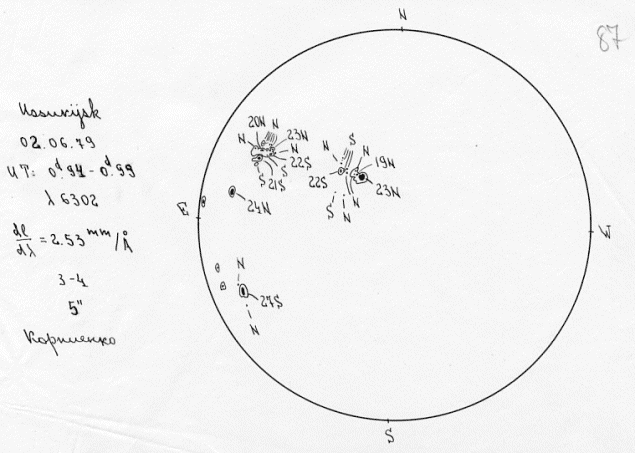 N
87
Ussurijsk
02.06.79
UT: 0ᵈ.94-0ᵈ.99
λ 6302
dl/dλ = 2.53 mm/Å
3-4
5"
Корниенко
20N N
N 23N
N
22S
S 21S
S
N S N
19N
22S 23N
N
S N
24N
E
W
N
27S
N
S